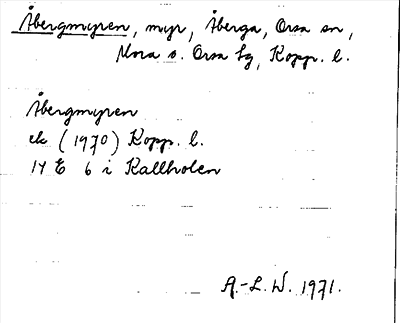 Åbergmyren, myr, Åberga, Orsa sn,
Mora o. Orsa tg, Kopp. l.
Åbergmyren
ek (1970) Kopp. l.
14 E 6 i Kallholen
A.-L. W. 1971.